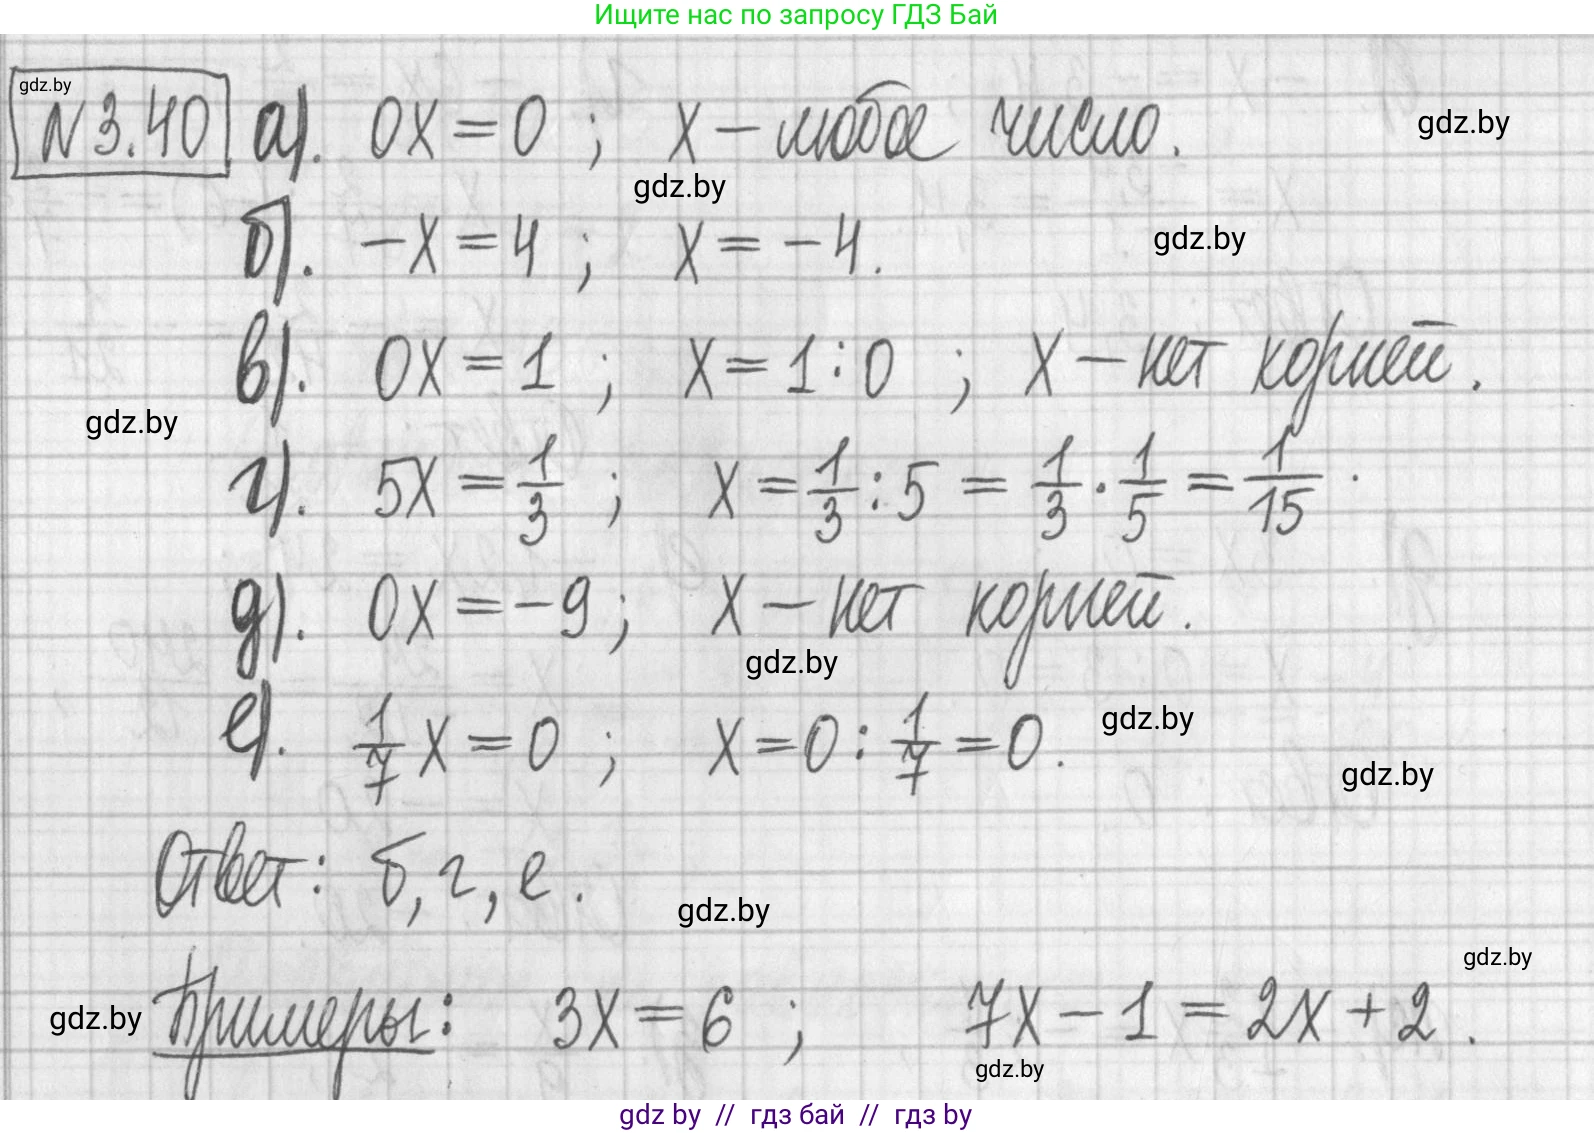 Ищите нас по запросу ГДЗ Бай
gdz.by
N 3.40 а). 0x = 0 ; x – любое число.
gdz.by
gdz.by
б). –x = 4 ; x = –4.
gdz.by
в). 0x = 1 ; x = 1 : 0 ; x – нет корней.
gdz.by
г). 5x = 1/3 ; x = 1/3 : 5 = 1/3 · 1/5 = 1/15 .
д). 0x = –9 ; x – нет корней.
gdz.by
е). 1/7 x = 0 ; x = 0 : 1/7 = 0.
gdz.by
gdz.by
Ответ: б, г, е.
gdz.by
gdz.by
Примеры: 3x = 6 ; 7x – 1 = 2x + 2 .
gdz.by
gdz.by
gdz by // гдз бай // гдз by